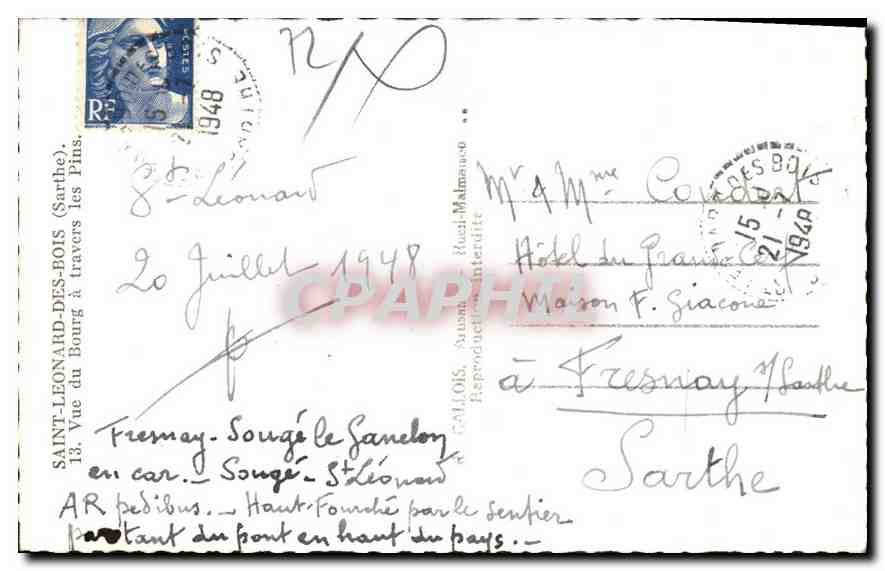 SAINT-LEONARD-DES-BOIS (Sarthe).
13. Vue du Bourg à travers les Pins.
RF
POSTES
1948
72
St-Léonard
20 Juillet 1948
Fresnay-Sougé le Ganelon
en car.- Sougé-St Léonard
AR pedibus.- Haut-Fourché par le sentier
partant du pont en haut du pays.-
GALLOIS, Rueil-Malmaison
Reproduction interdite
DES BOIS
15
21-7
1948
Mr & Mme
Hôtel du Grand Cerf
Maison F. Giacone
à Fresnay s/Sarthe
Sarthe
CPAPHIL